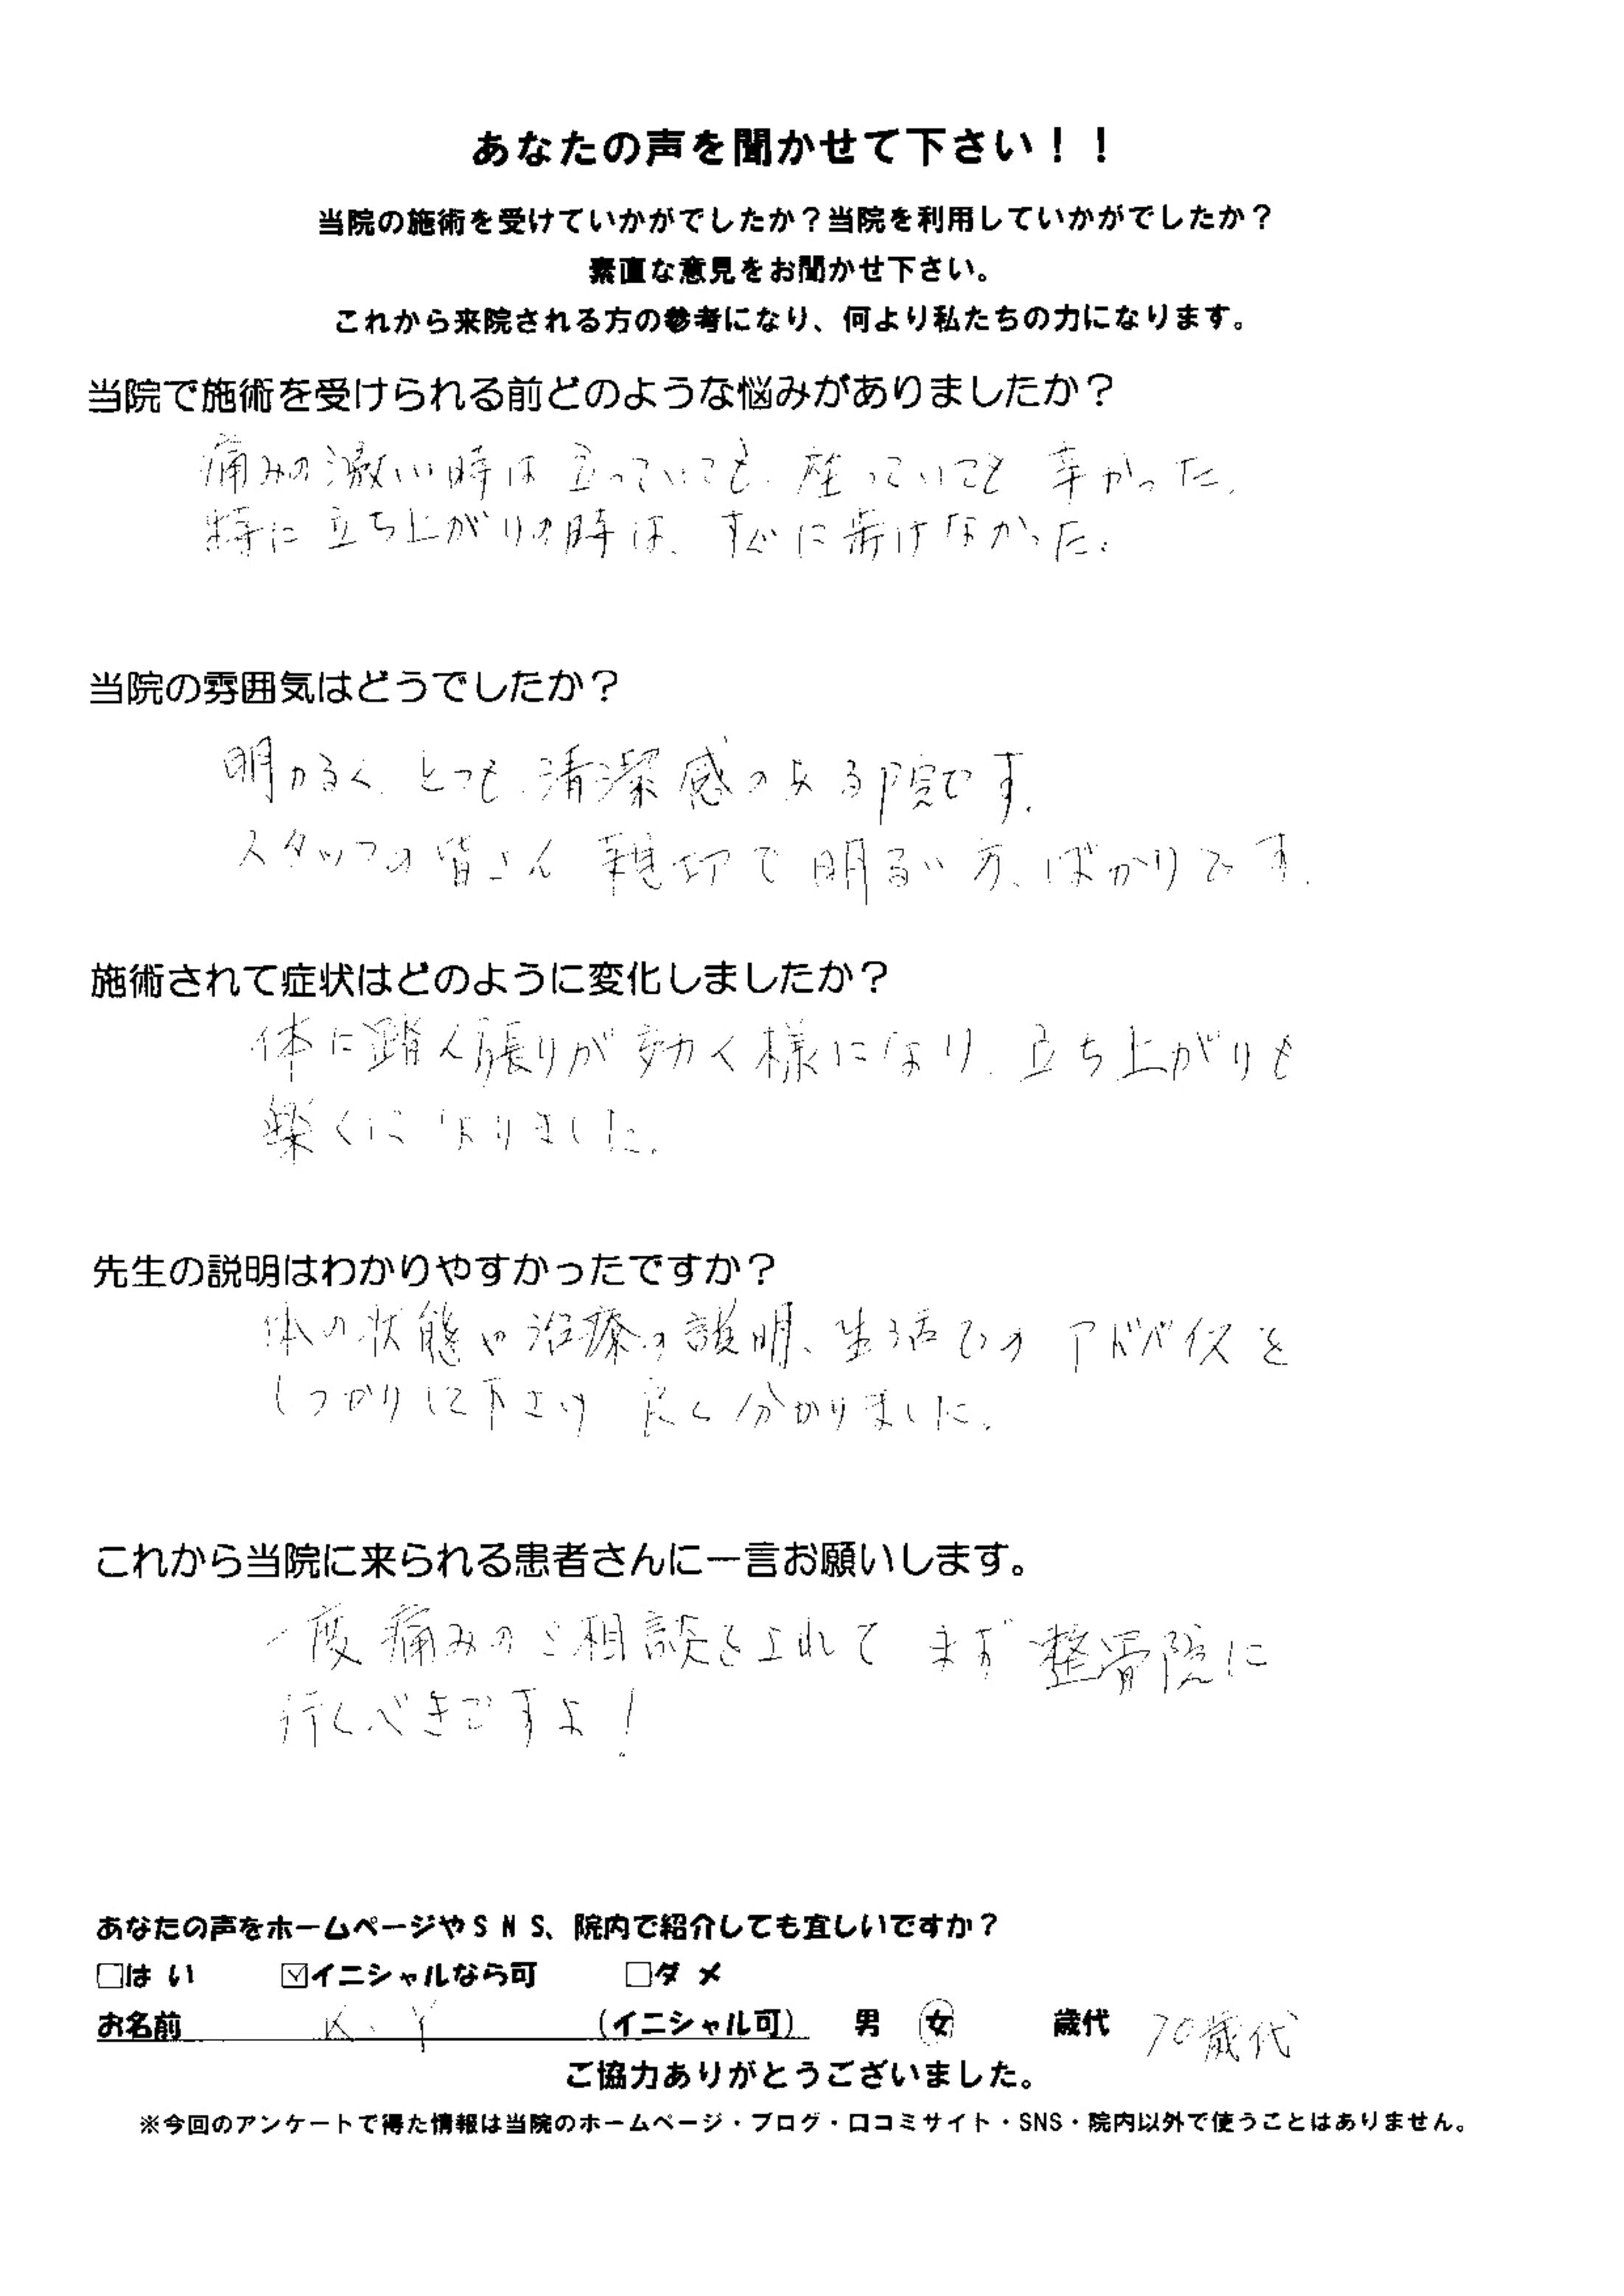 あなたの声を聞かせて下さい！！
当院の施術を受けていかがでしたか？当院を利用していかがでしたか？
素直な意見をお聞かせ下さい。
これから来院される方の参考になり、何より私たちの力になります。
当院で施術を受けられる前どのような悩みがありましたか？
痛みの激しい時は立っていても、座っていても辛かった。
特に立ち上がりの時は、すぐに歩けなかった。
当院の雰囲気はどうでしたか？
明かるく、とても清潔感のある院です。
スタッフの皆さん親切で明るい方、ばかりです。
施術されて症状はどのように変化しましたか？
体に踏ん張りが効く様になり、立ち上がりも
楽くになりました。
先生の説明はわかりやすかったですか？
体の状態や治療の説明、生活でのアドバイスを
しっかりして下さり良く分かりました。
これから当院に来られる患者さんに一言お願いします。
一度痛みのご相談をされてまず整骨院に
行くべきですよ！
あなたの声をホームページやＳＮＳ、院内で紹介しても宜しいですか？
□はい ☑イニシャルなら可 □ダメ
お名前 K.Y （イニシャル可） 男 女 歳代 70歳代
ご協力ありがとうございました。
※今回のアンケートで得た情報は当院のホームページ・ブログ・口コミサイト・SNS・院内以外で使うことはありません。